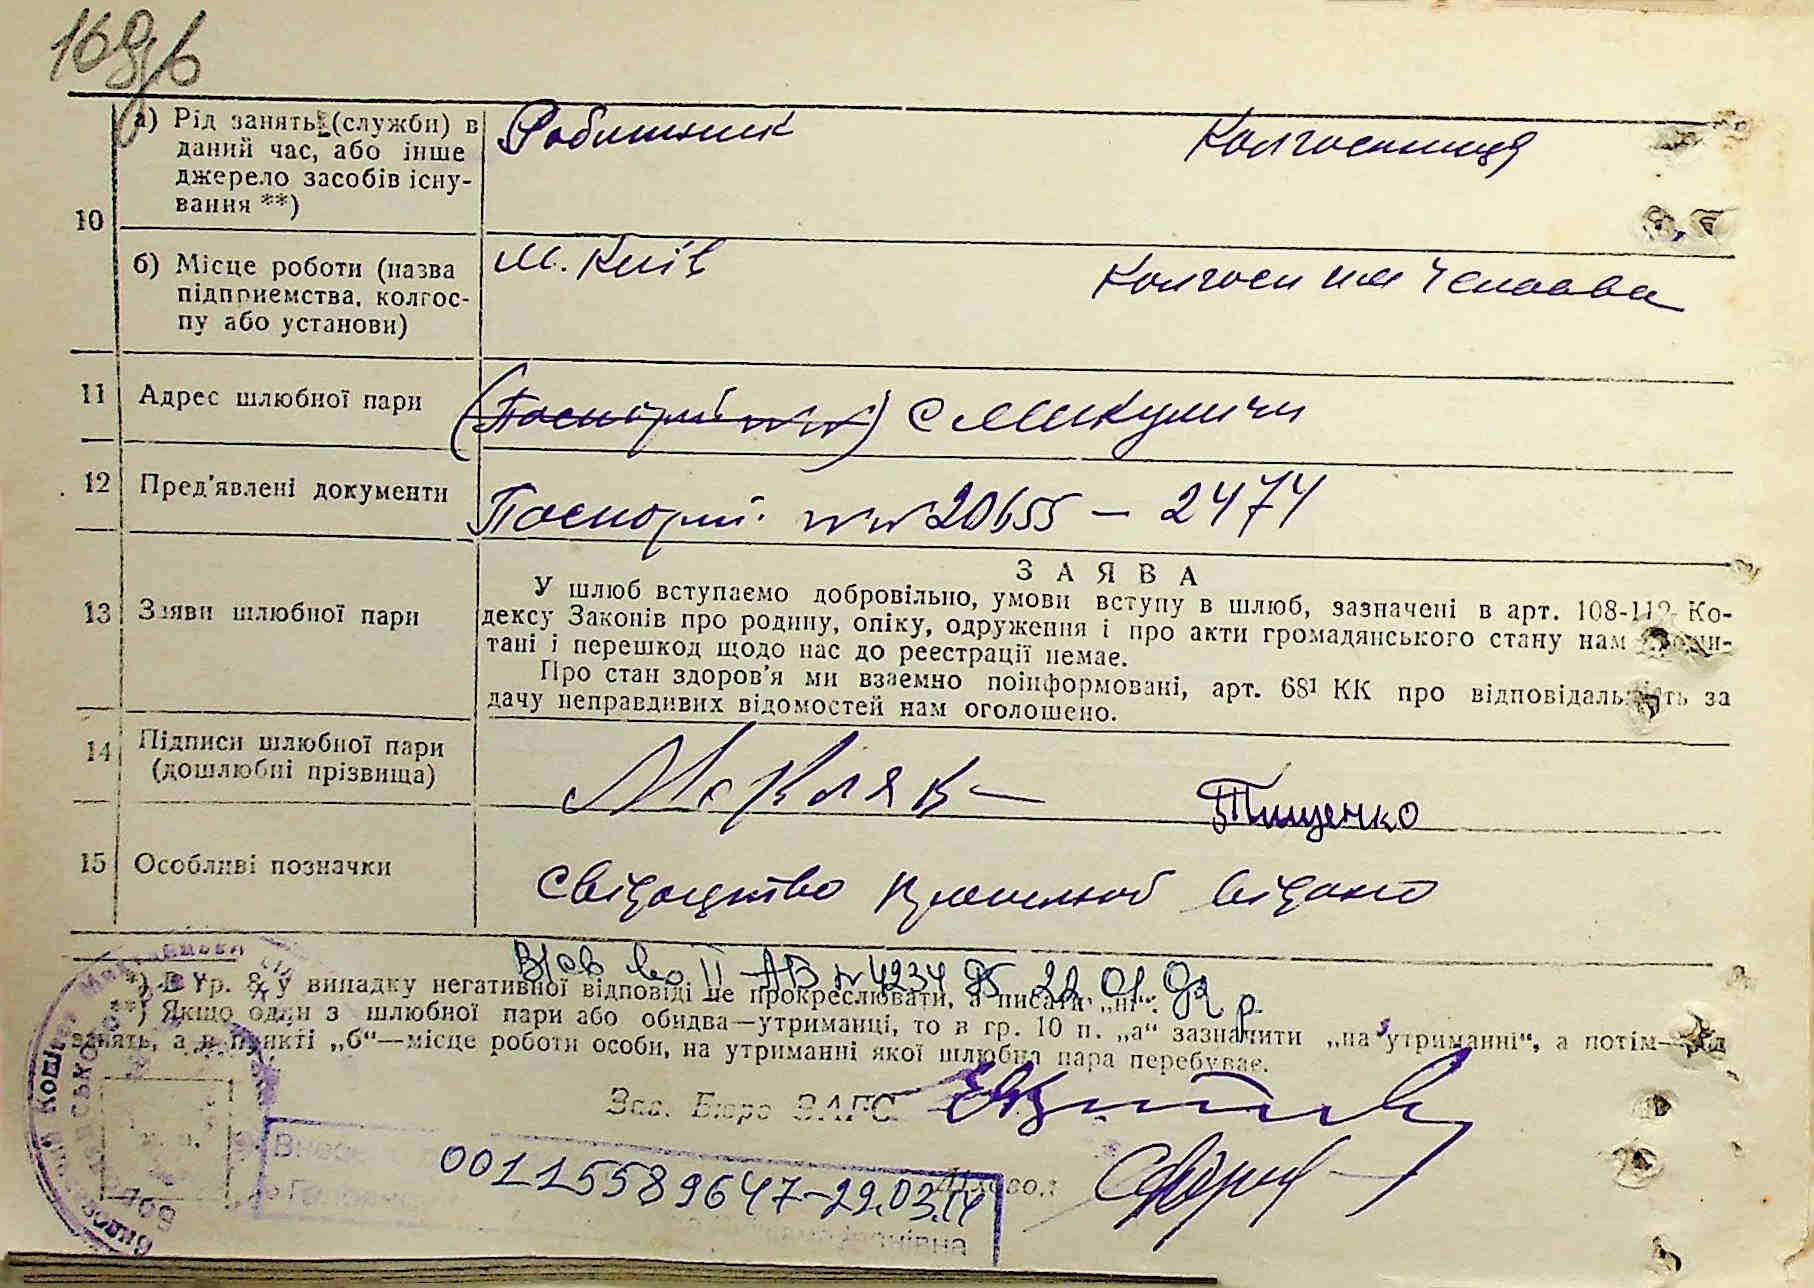 169зв
а) Рід занять (служби) в
даний час, або інше
джерело засобів існу-
вання **)
Робитник
Колгоспниця
10
б) Місце роботи (назва
підприємства, колгос-
пу або установи)
м. Київ
Колгосп им Чапаева
11 Адрес шлюбної пари
(Паспорти №№) С Микуличи
12 Пред'явлені документи
Паспорти №№ 20655 – 2474
13 Заяви шлюбної пари
ЗАЯВА
У шлюб вступаємо добровільно, умови вступу в шлюб, зазначені в арт. 108-112 Ко-
дексу Законів про родину, опіку, одруження і про акти громадянського стану нам
тані і перешкод щодо нас до реєстрації немає.
Про стан здоров'я ми взаємно поінформовані, арт. 68¹ КК про відповідальність за
дачу неправдивих відомостей нам оголошено.
14 Підписи шлюбної пари
(дошлюбні прізвища)
Мокляк
Тищенко
15 Особливі позначки
Свідоцтво видано
II АВ № 423495 22 01 р.
*) В гр. 8, у випадку негативної відповіді не прокреслювати, а писати „ні“.
**) Якщо один з шлюбної пари або обидва—утриманці, то в гр. 10 п. „а“ зазначити „на утриманні“, а потім—
занять, а в пункті „б“—місце роботи особи, на утриманні якої шлюбна пара перебуває.
Зав. Бюро ЗАГС
00115589647-29.03.14
Діловод: